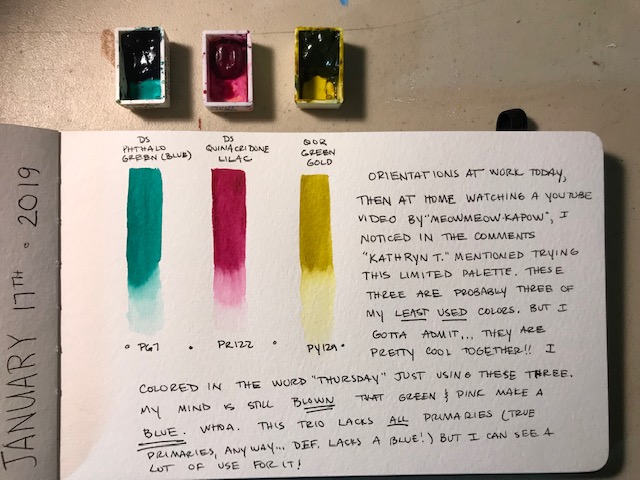 JANUARY 17TH • 2019
DS
PHTHALO
GREEN (BLUE)
DS
QUINACRIDONE
LILAC
QOR
GREEN
GOLD
• PG7 •
PR122 •
PY129 •
ORIENTATIONS AT WORK TODAY,
THEN AT HOME WATCHING A YOUTUBE
VIDEO BY "MEOWMEOW KAPOW", I
NOTICED IN THE COMMENTS
"KATHRYN T." MENTIONED TRYING
THIS LIMITED PALETTE. THESE
THREE ARE PROBABLY THREE OF
MY LEAST USED COLORS. BUT I
GOTTA ADMIT... THEY ARE
PRETTY COOL TOGETHER!! I
COLORED IN THE WORD "THURSDAY" JUST USING THESE THREE.
MY MIND IS STILL BLOWN THAT GREEN & PINK MAKE A
BLUE. WHOA. THIS TRIO LACKS ALL PRIMARIES (TRUE
PRIMARIES, ANYWAY... DEF. LACKS A BLUE!) BUT I CAN SEE A
LOT OF USE FOR IT!